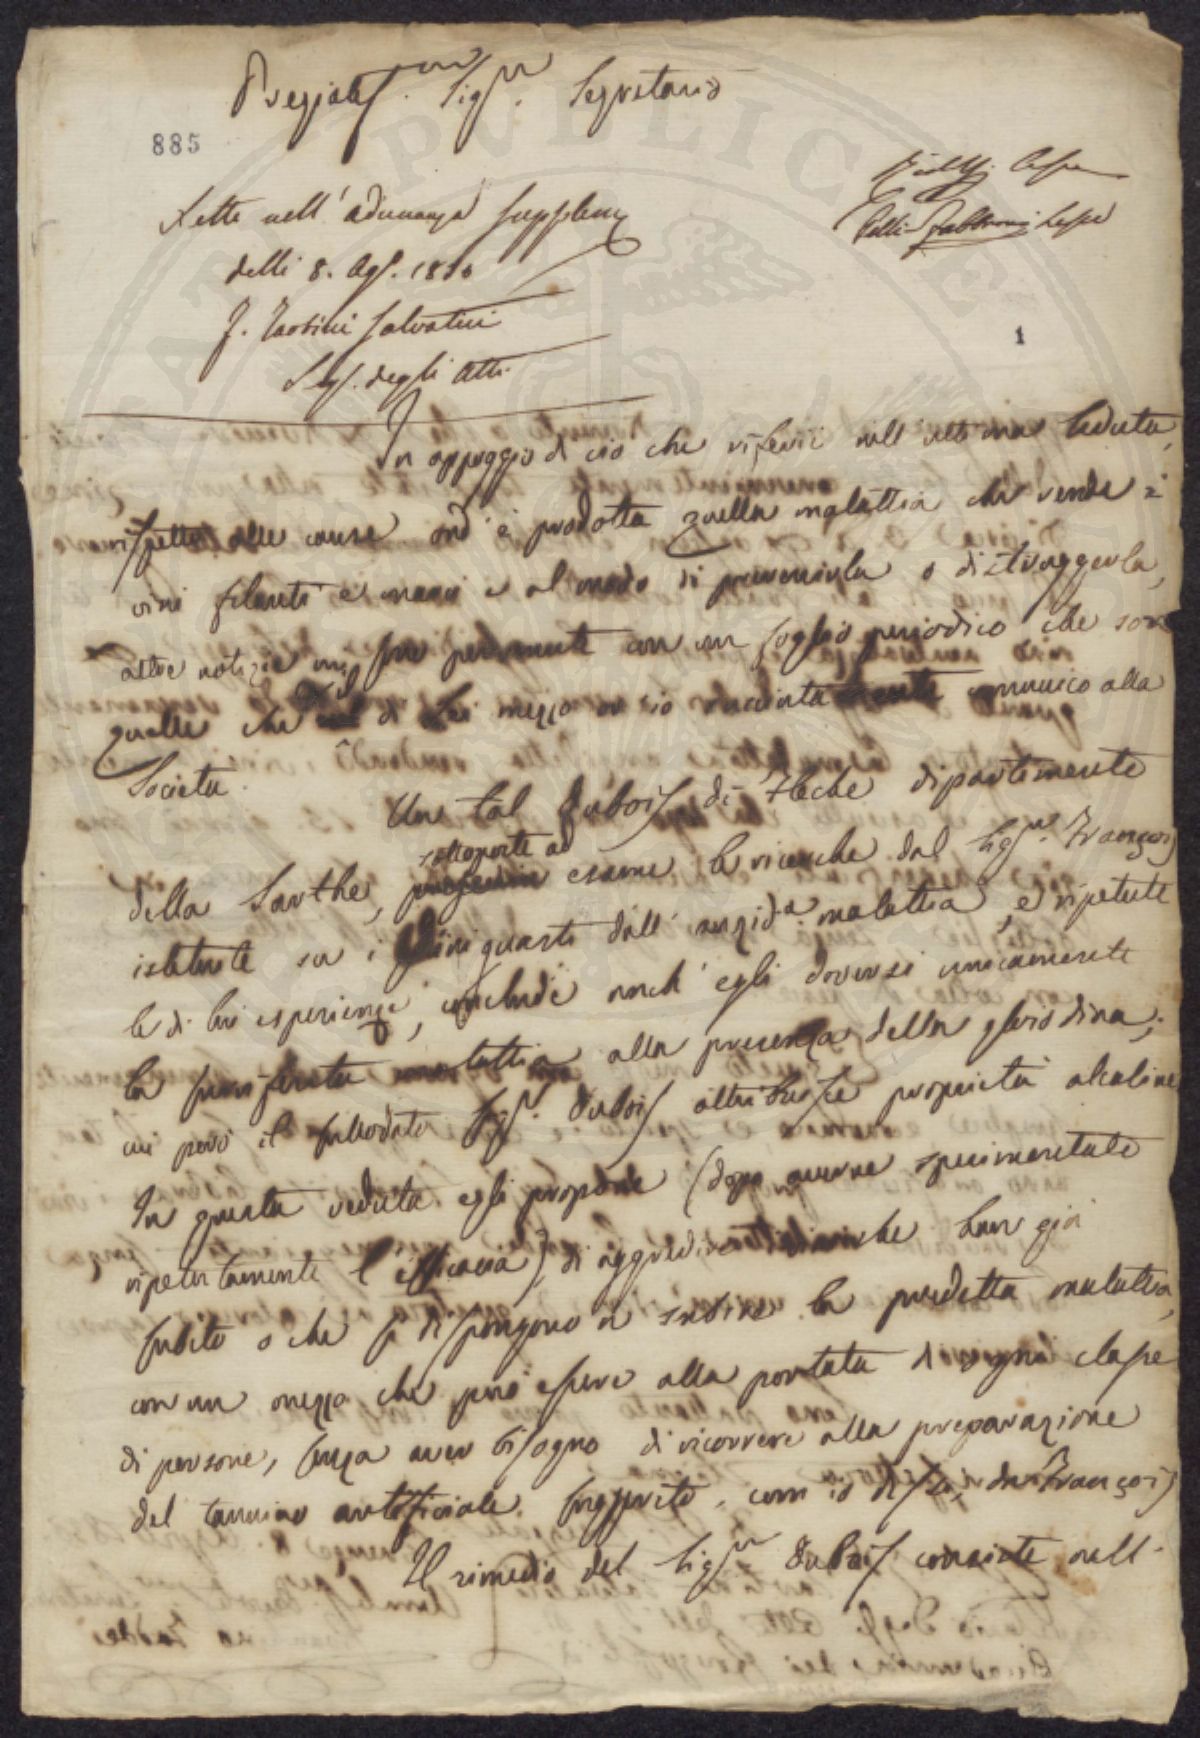 Pregiat. Sig.r Segretario
885
Letta nell' adunanza supplem
delli 8. Ag. 1830
F. Tartini Salvatici
Seg. degli Atti
Ridolfi
Pelli Fabbroni
1
In appoggio di ciò che riferii nell' ultima seduta,
rispetto alle cause ond' è prodotta quella malattia che rende i
vini filanti e al modo di prevenirla o distruggerla,
altre notizie mi pervenute con un foglio periodico che son
quelle che di mezzo comunico alla
Società.
Un tal Dubois di Fleche dipartimento
della Sarthe, sottoposte ad esame le ricerche dal Sig.r François
istituite su i vini guasti dall' anzid.a malattia, e ripetute
le di lui esperienze, conclude anch' egli doversi unicamente
la surriferita malattia alla presenza della gloiodina;
cui però il sullodato Sig. Dubois attribuisce proprietà alcaline
In questa veduta egli propone (dopo averne sperimentata
ripetutamente l'efficacia) di aggredire che han già
subito o che si dispongono a subire la predetta malattia,
con un mezzo che può essere alla portata di ogni classe
di persone, senza aver bisogno di ricorrere alla preparazione
del tannino artificiale suggerito, com' io dissi, da François
Il rimedio del Sig.r Dubois consiste nell'